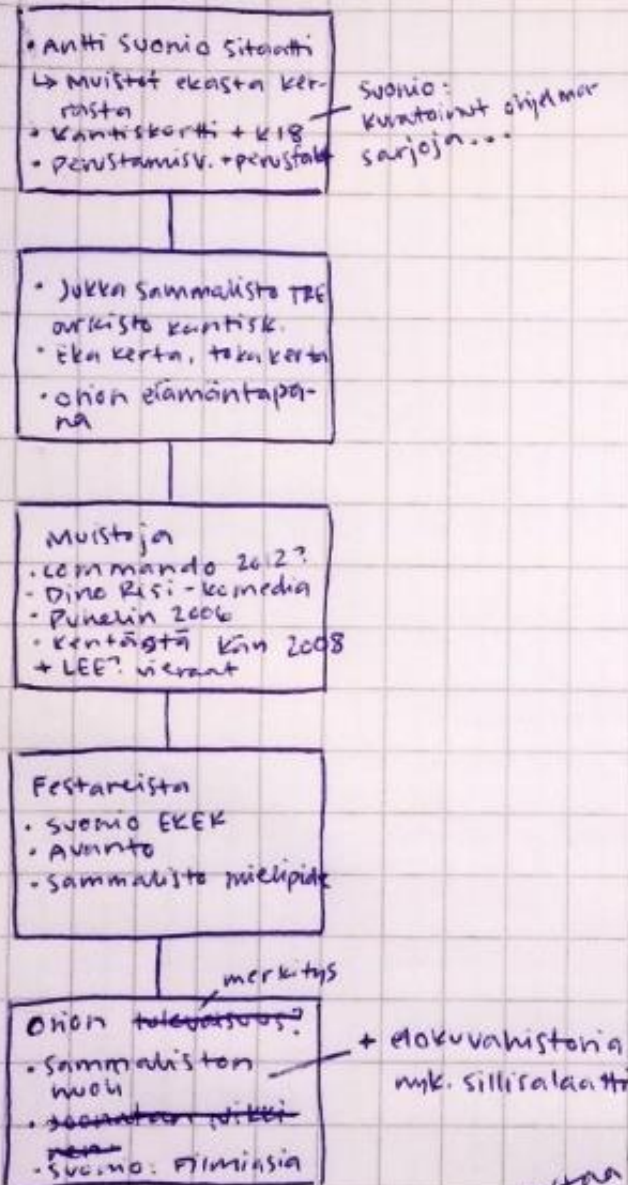 • Antti Suonio sitaatti
↳ Muistot ekasta ker-
rasta
• Kantiskortti + K18
• perustamisv. + perusfakt
Suonio:
kuratoinut ohjelma-
sarjoja...
• Jukka Sammalisto TRE
arkisto kantisk.
• Eka kerta, toka kerta
• Orion elämäntapa-
na
Muistoja
• Commando 2012?
- Dino Risi - komedia
• Puhelin 2006
• Kentästä Kän 2008
+ LEE? vieraat
Festareista
• Suonio EKEK
• Avanto
• Sammalisto mielipide
merkitys
Orion tulevaisuus?
• Sammaliston
huoli
+ elokuvahistoria
nyk. sillisalaatti
• Suonio: Filmiasia